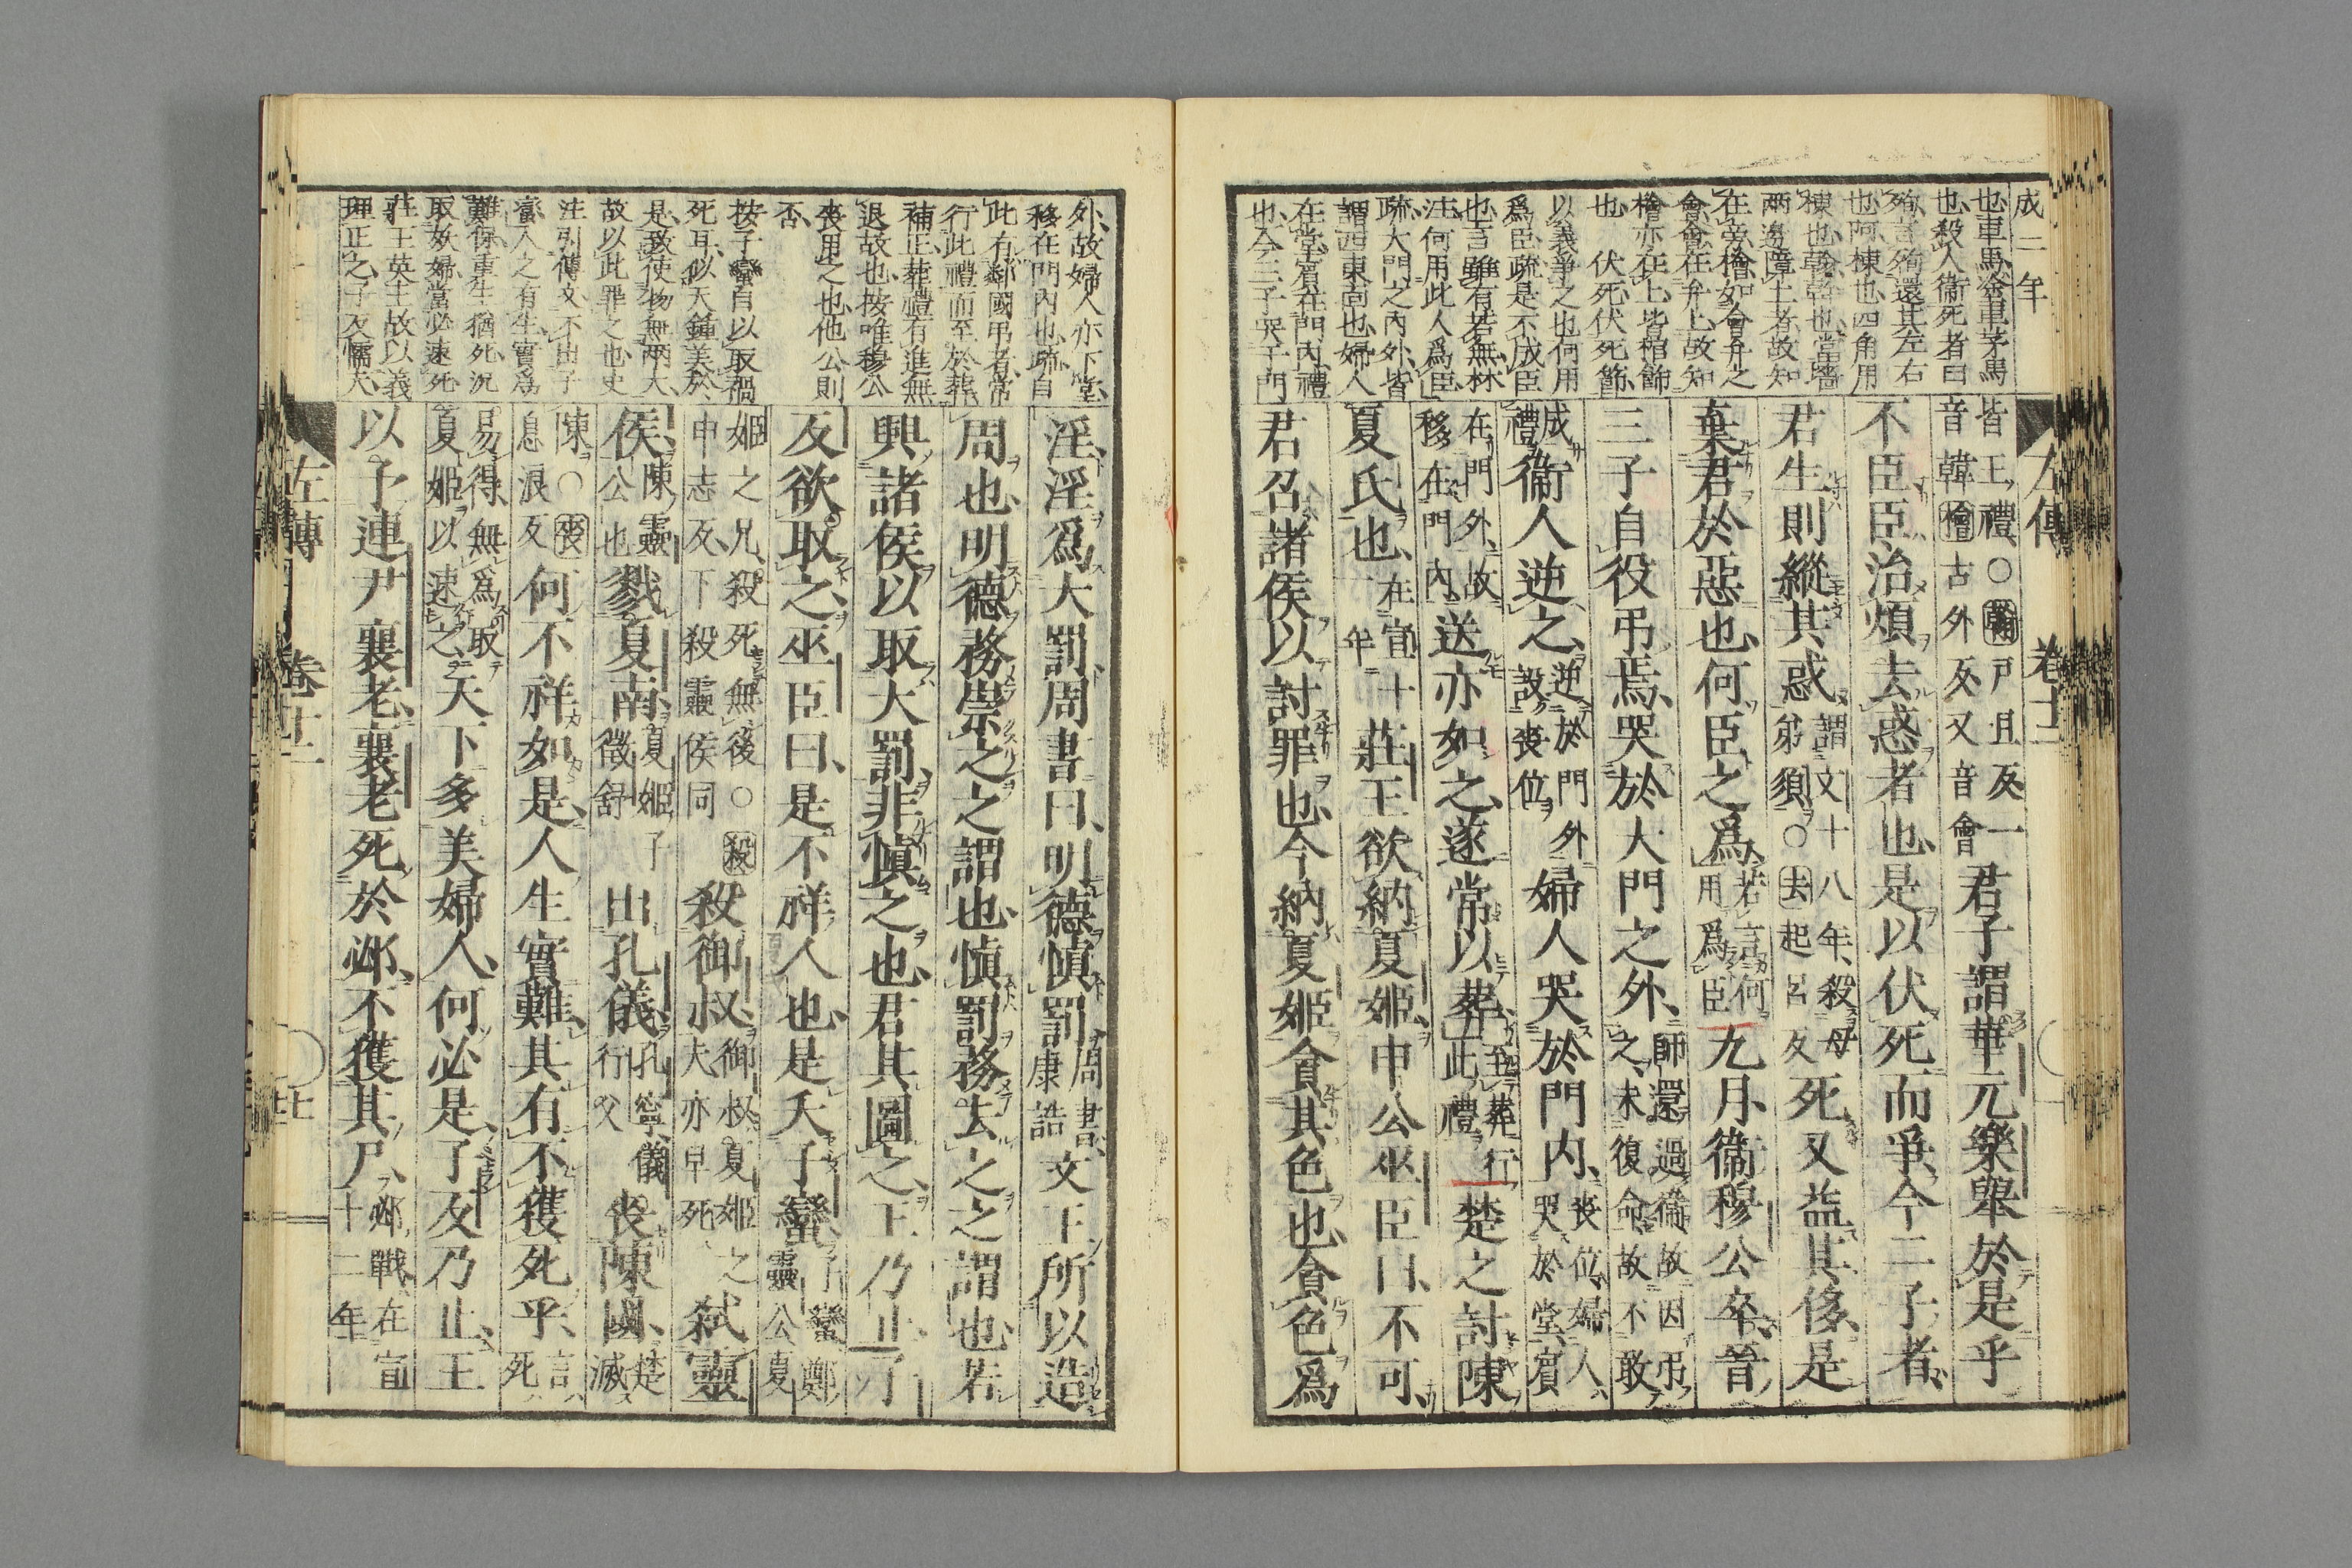 成二年
也車馬塗車茅馬
也殺人衞死者曰
殉言殉還其左右
也阿棟也四角用
棟也翰幹也當牆
兩邊障土者故知
在旁檜如會弁之
會會在弁上故知
檜亦在上皆棺飾
也 伏死伏死節
以義爭之也何用
爲臣疏是不成臣
也言雖有若無林
注何用此人爲臣
疏大門之內外皆
謂西東向也婦人
在堂賓在門內禮
也今三子哭于門
左傳 卷十二
皆王禮○翰戶旦反一
音韓檜古外反又音會
君子謂華元樂舉於是乎
不臣臣治煩去惑者也是以伏死而爭今二子者
君生則縱其惑謂文十八年殺母弟須○去起呂反死又益其侈是
棄君於惡也何臣之爲若言何用爲臣九月衞穆公卒晉
三子自役弔焉哭於大門之外師還過衞故因弔之未復命故不敢
成禮衞人逆之逆於門外設喪位婦人哭於門内喪位婦人哭於堂賓
在門外故移在門內送亦如之遂常以葬至葬行此禮楚之討陳
夏氏也在宣十一年莊王欲納夏姬申公巫臣曰不可
君召諸侯以討罪也今納夏姬貪其色也貪色爲
外故婦人亦下堂
移在門內也疏自
此有鄰國弔者常
行此禮而至於葬
補正葬禮有進無
退故也按唯穆公
喪用之也他公則
否
按子蠻自以取禍
死耳似天鍾美於
是致使物無兩大
故以此罪之也史
注引傳文不由子
蠻人之有生實爲
難保重生猶死況
取妖婦當必速死
莊王英主故以義
理正之子反懦夫
淫淫爲大罰周書曰明德愼罰周書康誥文王所以造
周也明德務崇之之謂也愼罰務去之之謂也若
興諸侯以取大罰非愼之也君其圖之王乃止子
反欲取之巫臣曰是不祥人也是夭子蠻子蠻鄭靈公夏
姬之兄殺死無後○殺申志反下殺靈侯同殺御叔御叔夏姬之夫亦早死弑靈
侯陳靈公也戮夏南夏姬子徵舒出孔儀孔寧儀行父喪陳國楚滅
陳○喪息浪反何不祥如是人生實難其有不獲死乎言死
易得無爲取夏姬以速之天下多美婦人何必是子反乃止王
以予連尹襄老襄老死於邲不獲其尸邲戰在宣十二年
左傳 卷十二 廿七